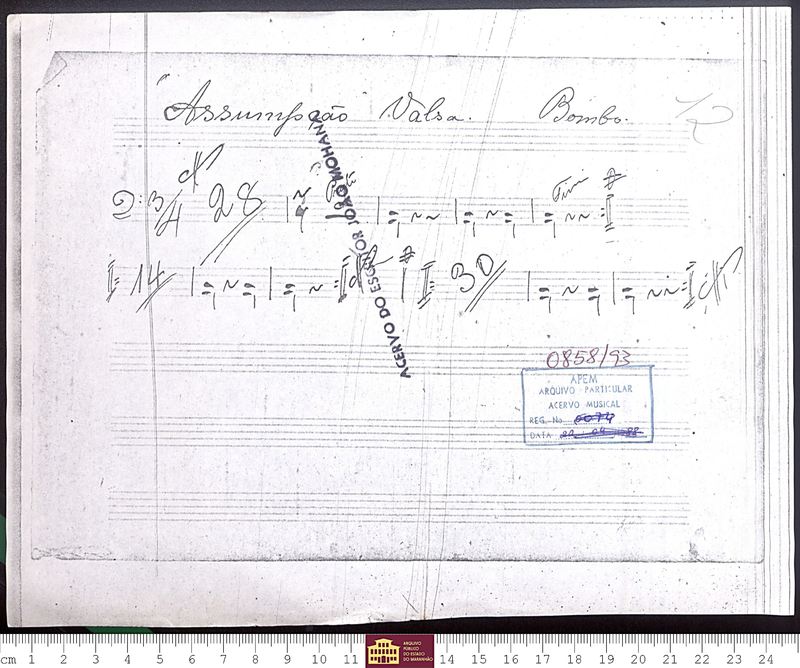 "Assumpção" Valsa. Bombo.
3/4 28 Fim
14 30
ACERVO DO ESCRITOR JOÃO MOHANA
0858/93
APEM
ARQUIVO PARTICULAR
ACERVO MUSICAL
REG. No.
DATA
cm 1 2 3 4 5 6 7 8 9 10 11 14 15 16 17 18 19 20 21 22 23 24
ARQUIVO
PÚBLICO
DO ESTADO
DO MARANHÃO